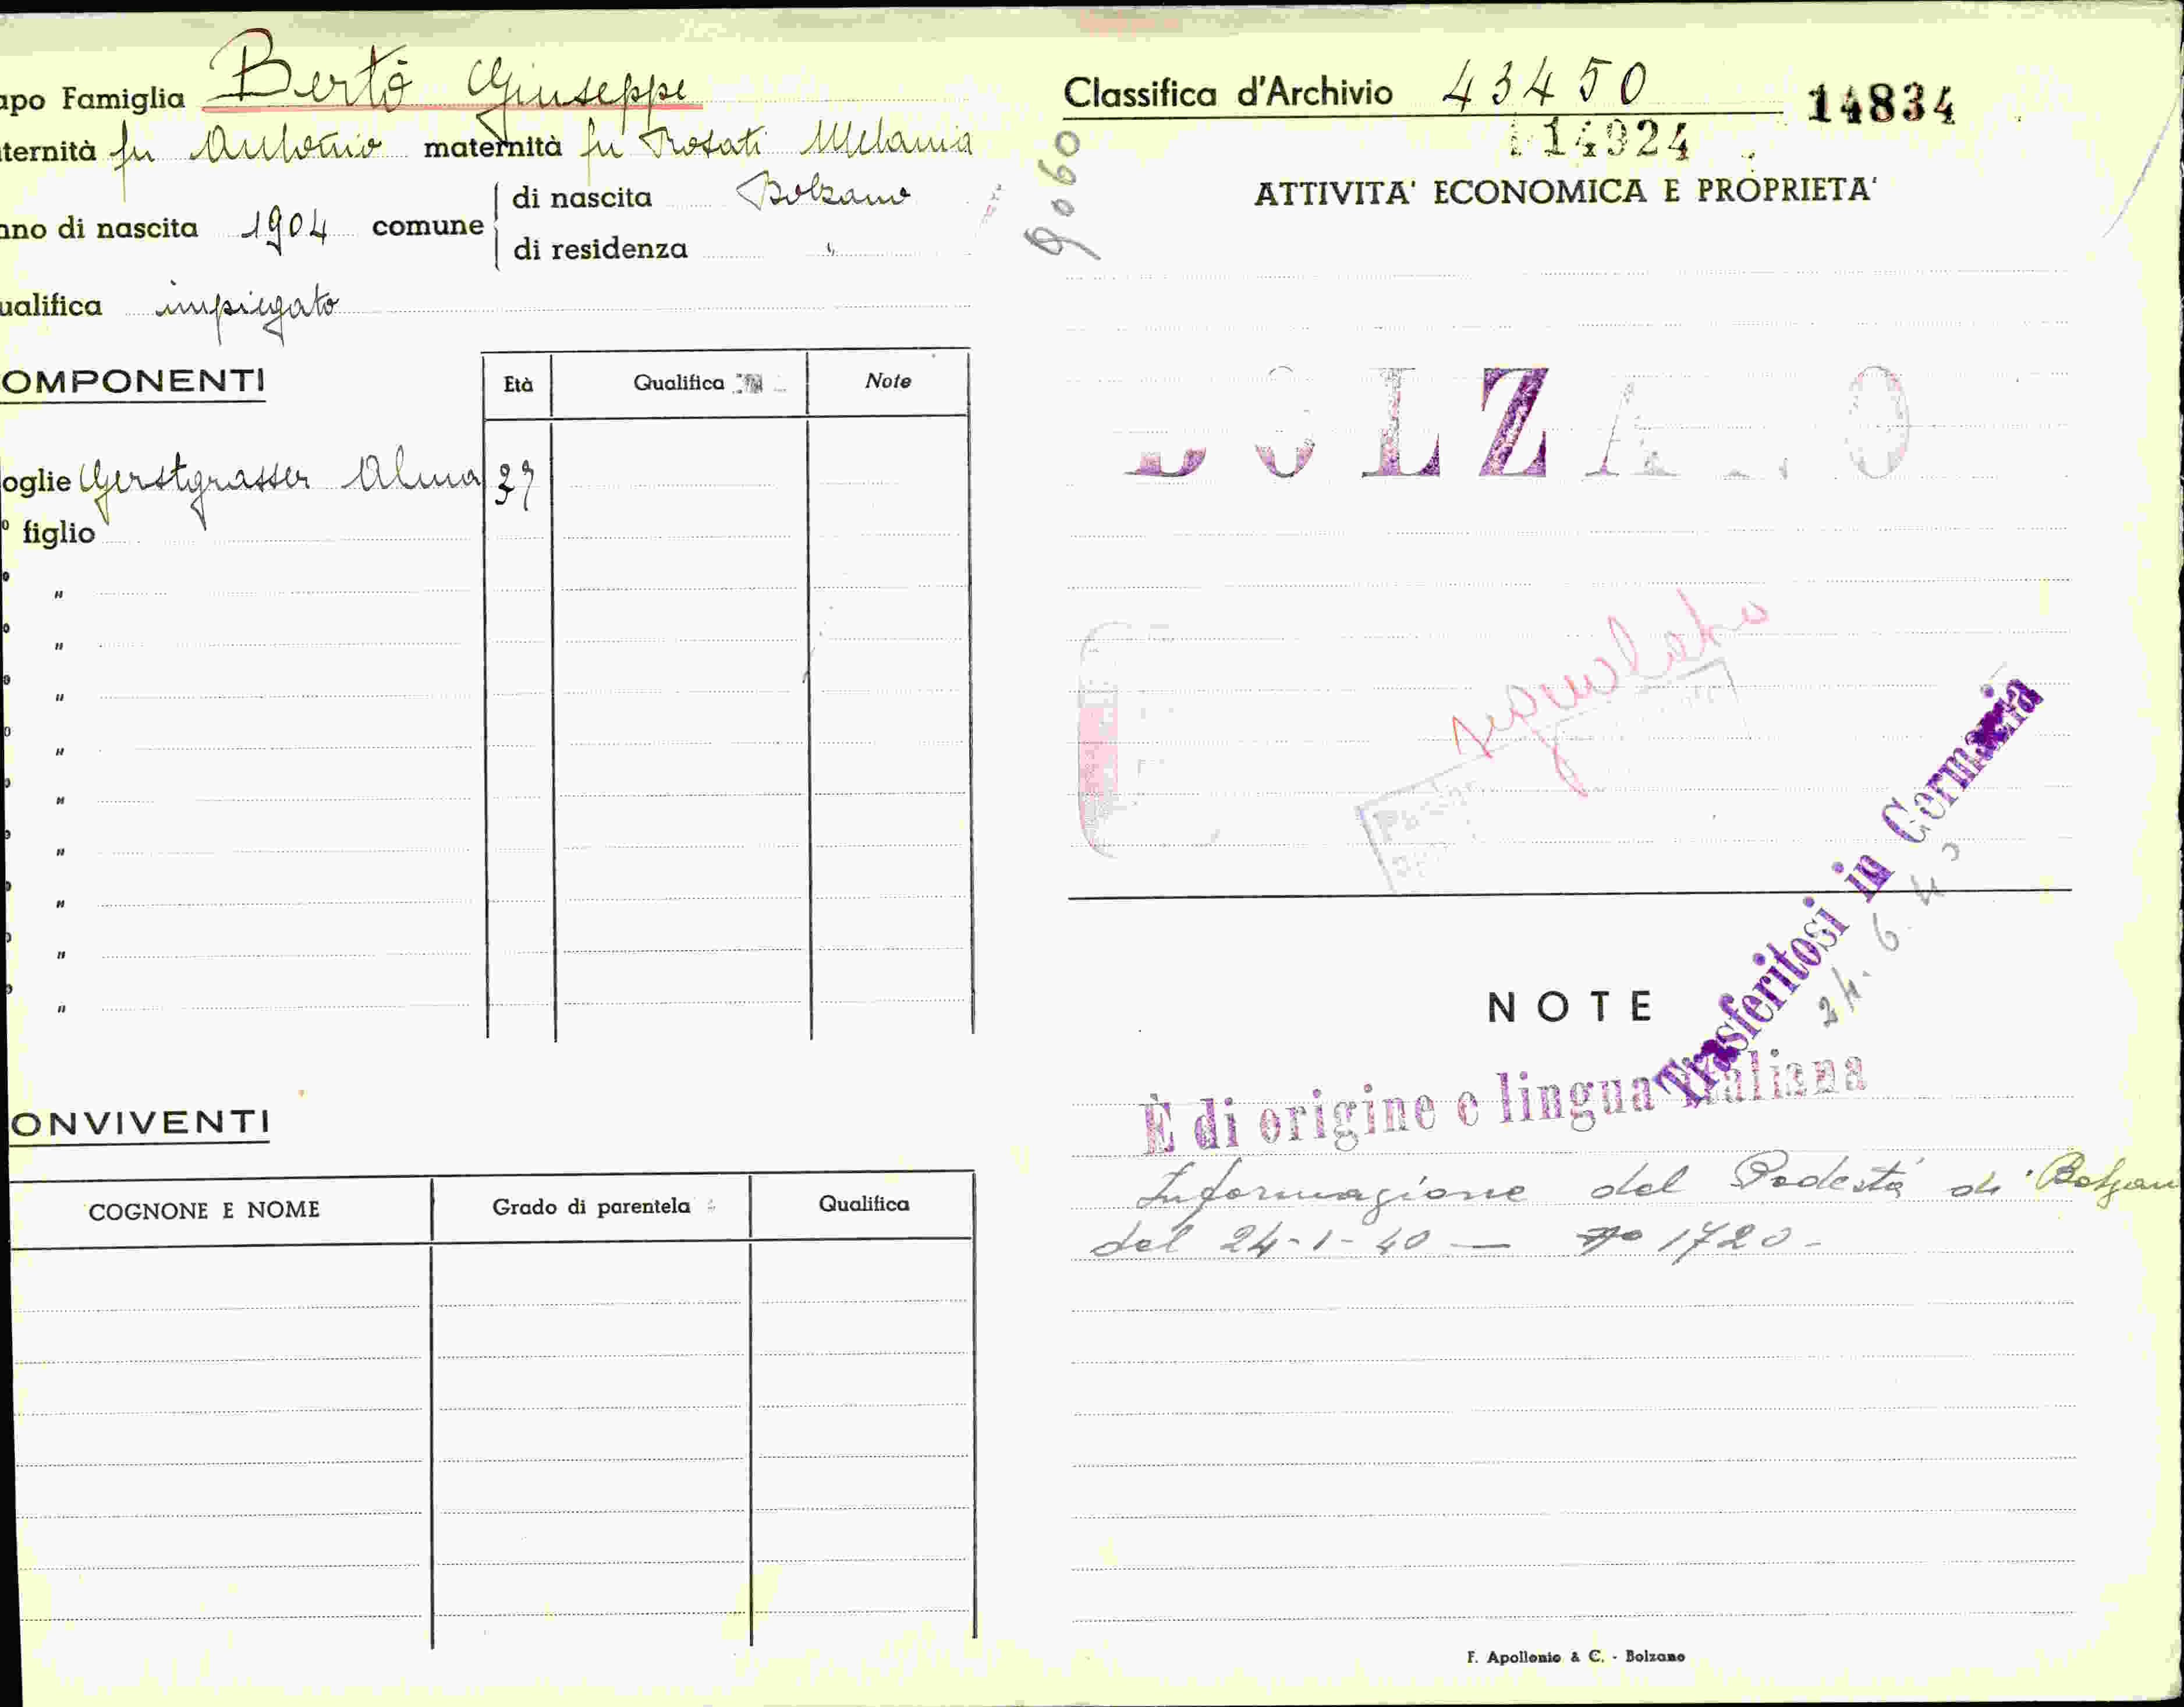 apo Famiglia Bertò Giuseppe
ternità fu Antonio maternità fu Rosati Melania
nno di nascita 1904 comune di nascita Bolzano
di residenza "
ualifica impiegato
OMPONENTI Età Qualifica Note
oglie Gerstgrasser Alma 37
° figlio
"
"
"
"
"
"
"
"
"
ONVIVENTI
COGNOME E NOME Grado di parentela Qualifica
Classifica d'Archivio 43450 14834
14924
9060
ATTIVITA' ECONOMICA E PROPRIETA'
BOLZANO
segnalato
Trasferitosi in Germania
24. 6. 4
NOTE
È di origine e lingua italiana
Informazione del Podestà di Bolzan
del 24-1-40 — 1720-
F. Apollonio & C. - Bolzano